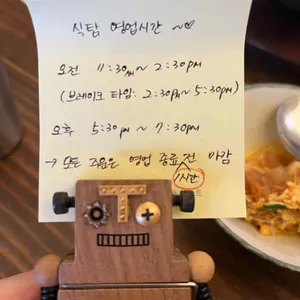 식탐 영업시간 ~♡
오전 11:30am ~ 2:30pm
(브레이크 타임: 2:30pm ~ 5:30pm)
오후 5:30pm ~ 7:30pm
→ 모든 주문은 영업 종료 전 마감
1시간